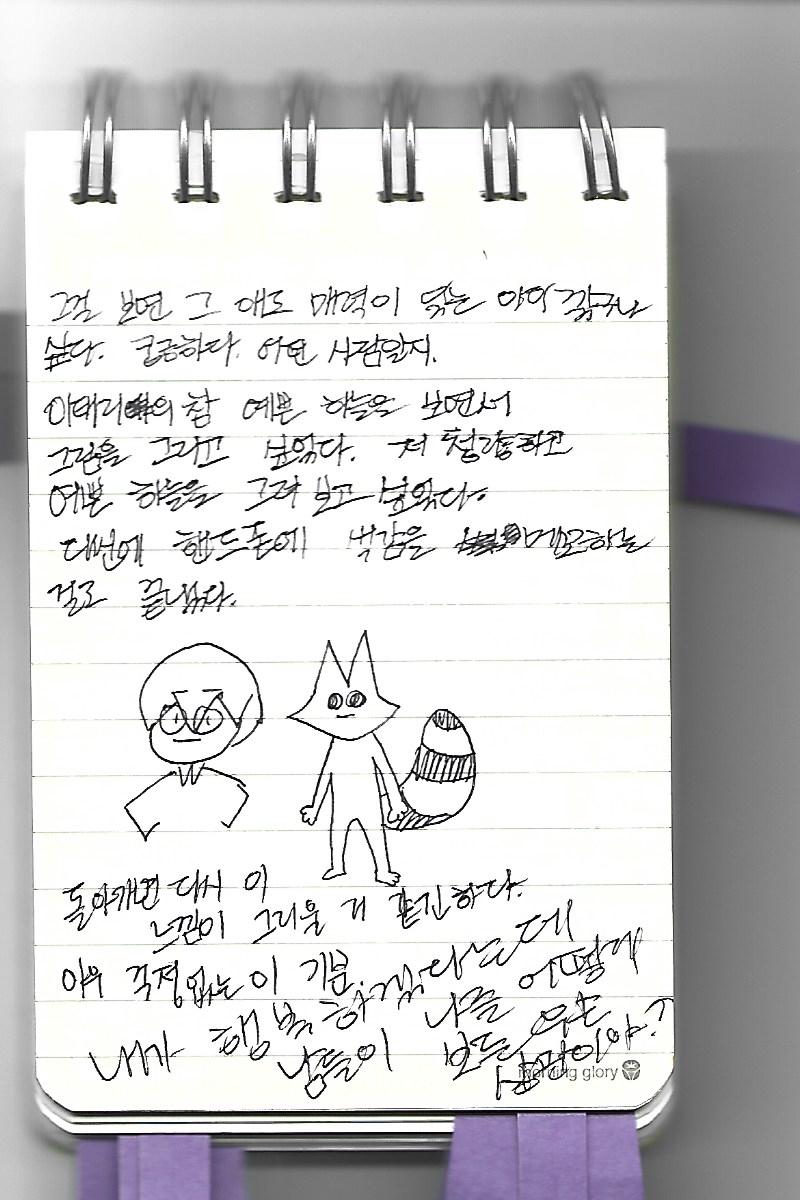 그걸 보면 그 애도 매력이 있는
싶다. 궁금하다. 어떤 사람일지.
이태리의 참 예쁜 하늘을 보면서
그림을 그리고 싶었다. 저 청량하고
예쁜 하늘을 그려 보고 싶었다.
대번에 핸드폰에 색감을 메모하는
걸로 끝났다.
돌아가면 다시 이
느낌이 그리울 거 같긴하다.
아무 걱정 없는 이 기분.
내가 행복하겠다는데
남들이 나를 어떻게
보든 무슨
상관이야?
morning glory